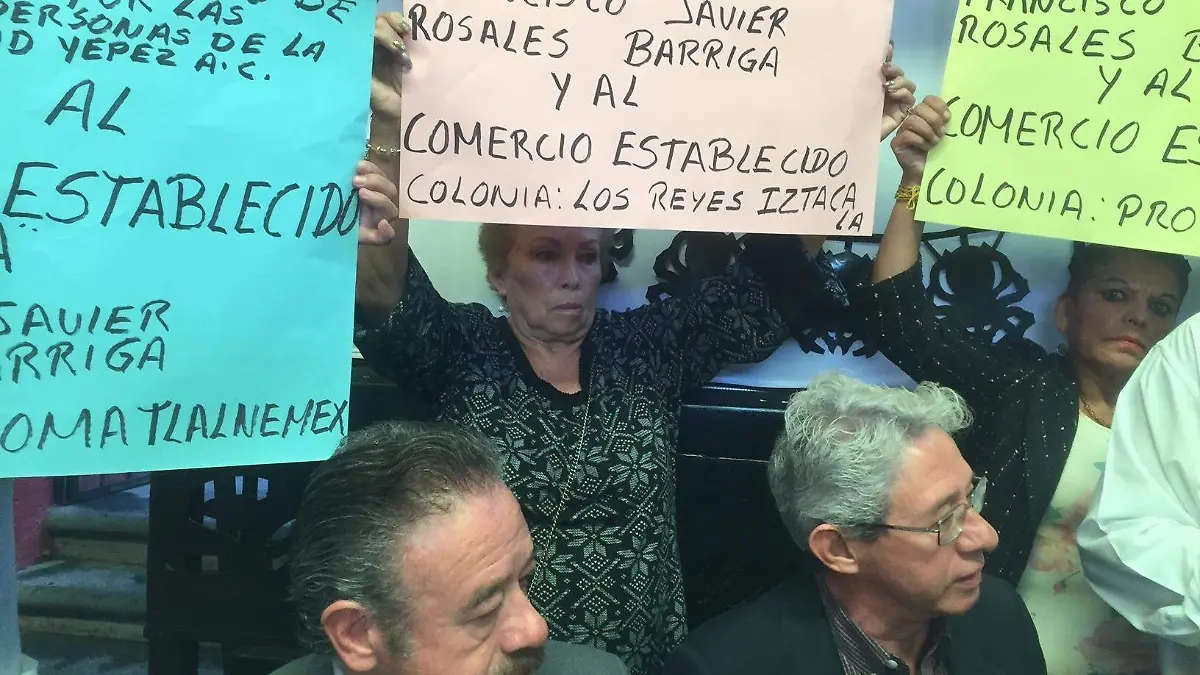 POR LAS
PERSONAS DE LA
YEPEZ A.C.
AL
ESTABLECIDO
JAVIER
BARRIGA
TLALNEMEX
JAVIER
ROSALES BARRIGA
Y AL
COMERCIO ESTABLECIDO
COLONIA: LOS REYES IZTACA
LA
FRANCISCO
ROSALES
Y AL
COMERCIO
COLONIA: